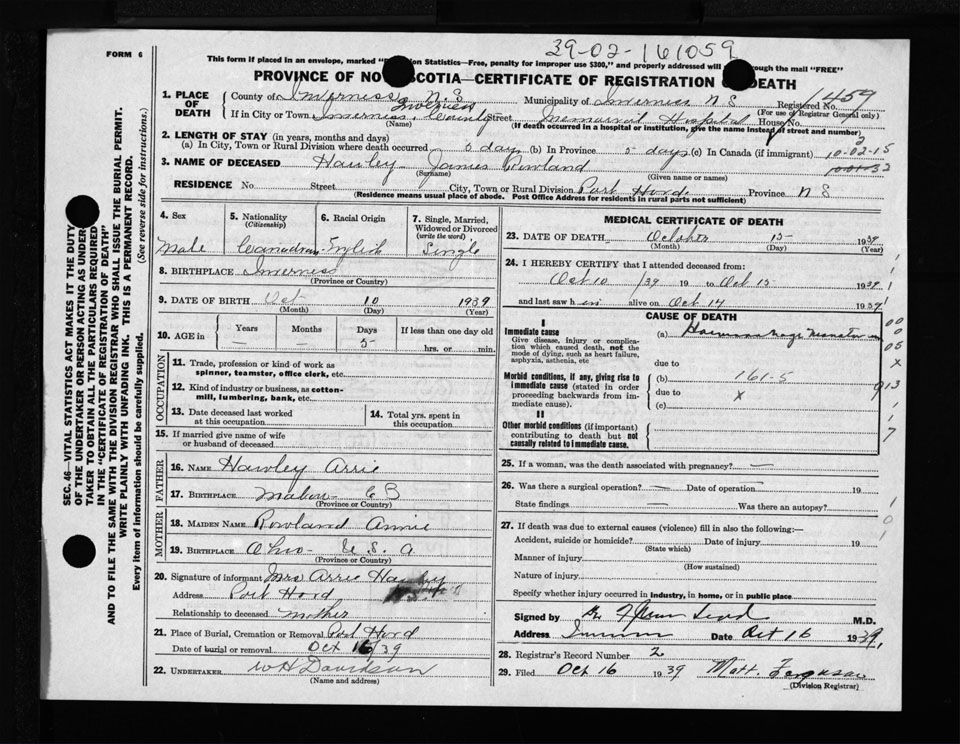 39-02-161059
FORM 6
This form if placed in an envelope, marked "Statistics—Free, penalty for improper use $300," and properly addressed will through the mail "FREE"
PROVINCE OF NO SCOTIA—CERTIFICATE OF REGISTRATION DEATH
1459
1. PLACE OF DEATH
County of Inverness N.S Municipality of Inverness N S Registered No.
(For use of Registrar General only)
If in City or Town Inverness Inverness County Street Memorial Hospital House No.
(Name) (If death occurred in a hospital or institution, give the name instead of street and number)
2. LENGTH OF STAY (in years, months and days)
(a) In City, Town or Rural Division where death occurred 5 days (b) In Province 5 days (c) In Canada (if immigrant) 10-02-15
3. NAME OF DECEASED Hawley James Rowland
(Surname) (Given name or names)
RESIDENCE No. Street City, Town or Rural Division Port Hood Province N S
(Residence means usual place of abode. Post Office Address for residents in rural parts not sufficient)
4. Sex
Male
5. Nationality
(Citizenship)
Canadian
6. Racial Origin
English
7. Single, Married, Widowed or Divorced
(write the word)
Single
8. BIRTHPLACE Inverness
(Province or Country)
9. DATE OF BIRTH Oct 10 1939
(Month) (Day) (Year)
10. AGE in Years Months Days If less than one day old
— — 5 hrs. or min.
OCCUPATION
11. Trade, profession or kind of work as
spinner, teamster, office clerk, etc.
12. Kind of industry or business, as cotton-
mill, lumbering, bank, etc.
13. Date deceased last worked
at this occupation
14. Total yrs. spent in
this occupation
15. If married give name of wife
or husband of deceased
FATHER
16. NAME Hawley Arrie
17. BIRTHPLACE Mabou C B
(Province or Country)
MOTHER
18. MAIDEN NAME Rowland Annie
19. BIRTHPLACE Ohio U.S.A
(Province or Country)
20. Signature of informant Mrs Arrie Hawley
Address Port Hood
Relationship to deceased mother
21. Place of Burial, Cremation or Removal Port Hood
Date of burial or removal Oct 16/39
22. UNDERTAKER W H Davidson
(Name and address)
MEDICAL CERTIFICATE OF DEATH
23. DATE OF DEATH October 15 1939
(Month) (Day) (Year)
24. I HEREBY CERTIFY that I attended deceased from:
Oct 10 /39 19 to Oct 15 1939
and last saw h im alive on Oct 14 1939
CAUSE OF DEATH
I
Immediate cause
Give disease, injury or complica-
tion which caused death, not the
mode of dying, such as heart failure,
asphyxia, asthenia, etc
(a)
due to
Morbid conditions, if any, giving rise to
immediate cause (stated in order
proceeding backwards from im-
mediate cause).
(b) 161-5
due to x
(c)
II
Other morbid conditions (if important)
contributing to death but not
causally related to immediate cause.
25. If a woman, was the death associated with pregnancy? —
26. Was there a surgical operation? — Date of operation — 19
State findings Was there an autopsy?
27. If death was due to external causes (violence) fill in also the following:—
Accident, suicide or homicide? Date of injury 19
(State which)
Manner of injury
(How sustained)
Nature of injury
Specify whether injury occurred in industry, in home, or in public place
Signed by M.D.
Address Date Oct 16 1939.
28. Registrar's Record Number 2
29. Filed Oct 16 1939 Matt. Ferguson
(Division Registrar)
SEC. 46—VITAL STATISTICS ACT MAKES IT THE DUTY
OF THE UNDERTAKER OR PERSON ACTING AS UNDER-
TAKER TO OBTAIN ALL THE PARTICULARS REQUIRED
IN THE "CERTIFICATE OF REGISTRATION OF DEATH"
AND TO FILE THE SAME WITH THE DIVISION REGISTRAR WHO SHALL ISSUE THE BURIAL PERMIT.
WRITE PLAINLY WITH UNFADING INK. THIS IS A PERMANENT RECORD.
Every item of information should be carefully supplied. (See reverse side for instructions.)